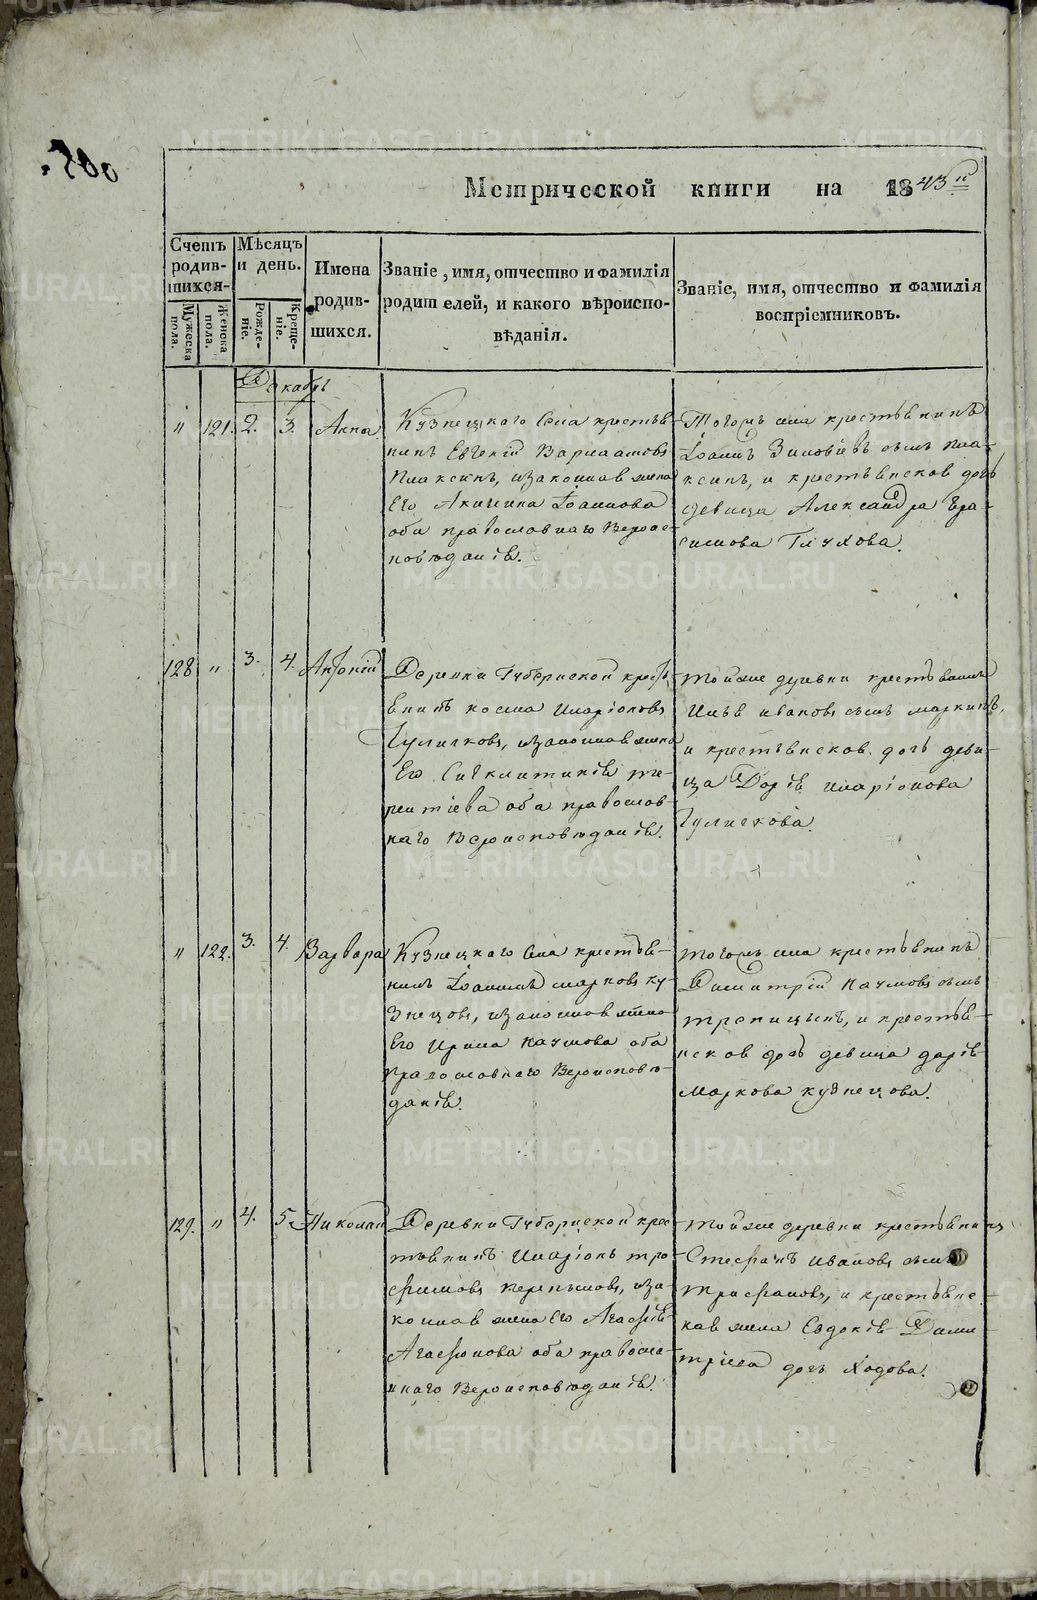 Метрической книги на 1843 й
Счетъ родив-шихся.
Мужеска пола.
Женска пола.
Мѣсяцъ и день.
Рожде-ніе.
Креще-ніе.
Имена родив-шихся.
Званіе, имя, отчество и фамилія
родителей, и какого вѣроиспо-
вѣданія.
Званіе, имя, отчество и фамилія
воспріемниковъ.
Декабрь
" 121. 2. 3. Анна
Кузнецкого села крестья-
нинъ Евгеній Варлаамовъ
Плаксинъ, и законная жена
Его Акилина Іоаннова
оба православнаго Вероис-
поведанія.
Тогожъ села крестьянинъ
Іоаннъ Зиновіевъ сынъ Пла-
ксинъ, и крестьянская дочь
девица Александра Гера-
симова Глухова.
128 " 3. 4. Антоній
Деревни Губернской кресть-
янинъ косма Иларіоновъ
Гуличковъ, и законная жена
Его Сигклитикія те-
рентіева оба православ-
наго Вероисповеданія.
той же деревни крестьянинъ
Илья ивановъ сынъ маркинъ,
и крестьянская дочь деви-
ца Дарія иларіонова
" 122. 3. 4. Варвара
Кузнецкого села крестья-
нинъ Іоаннъ марковъ ку-
знецовъ, и законная жена
Его Ирина наумова оба
православнаго Вероисповѣ-
данія.
тогожъ села крестьянинъ
Димитрій наумовъ сынъ
трепицынъ, и крестья-
нская дочь девица дарія
маркова кузнецова.
129. " 4. 5. Николай
Деревни Губернской крес-
тьянинъ Иларіонъ тро-
фимовъ и за-
конная жена Его Агафія
Агафонова оба правосла-
внаго Вероисповеданія.
той же деревни крестьянинъ
Стефанъ ивановъ сынъ
трифановъ, и крестьянс-
кая жена Евдокія Дими-
тріева дочь Ходова.
METRIKI.GASO-URAL.RU